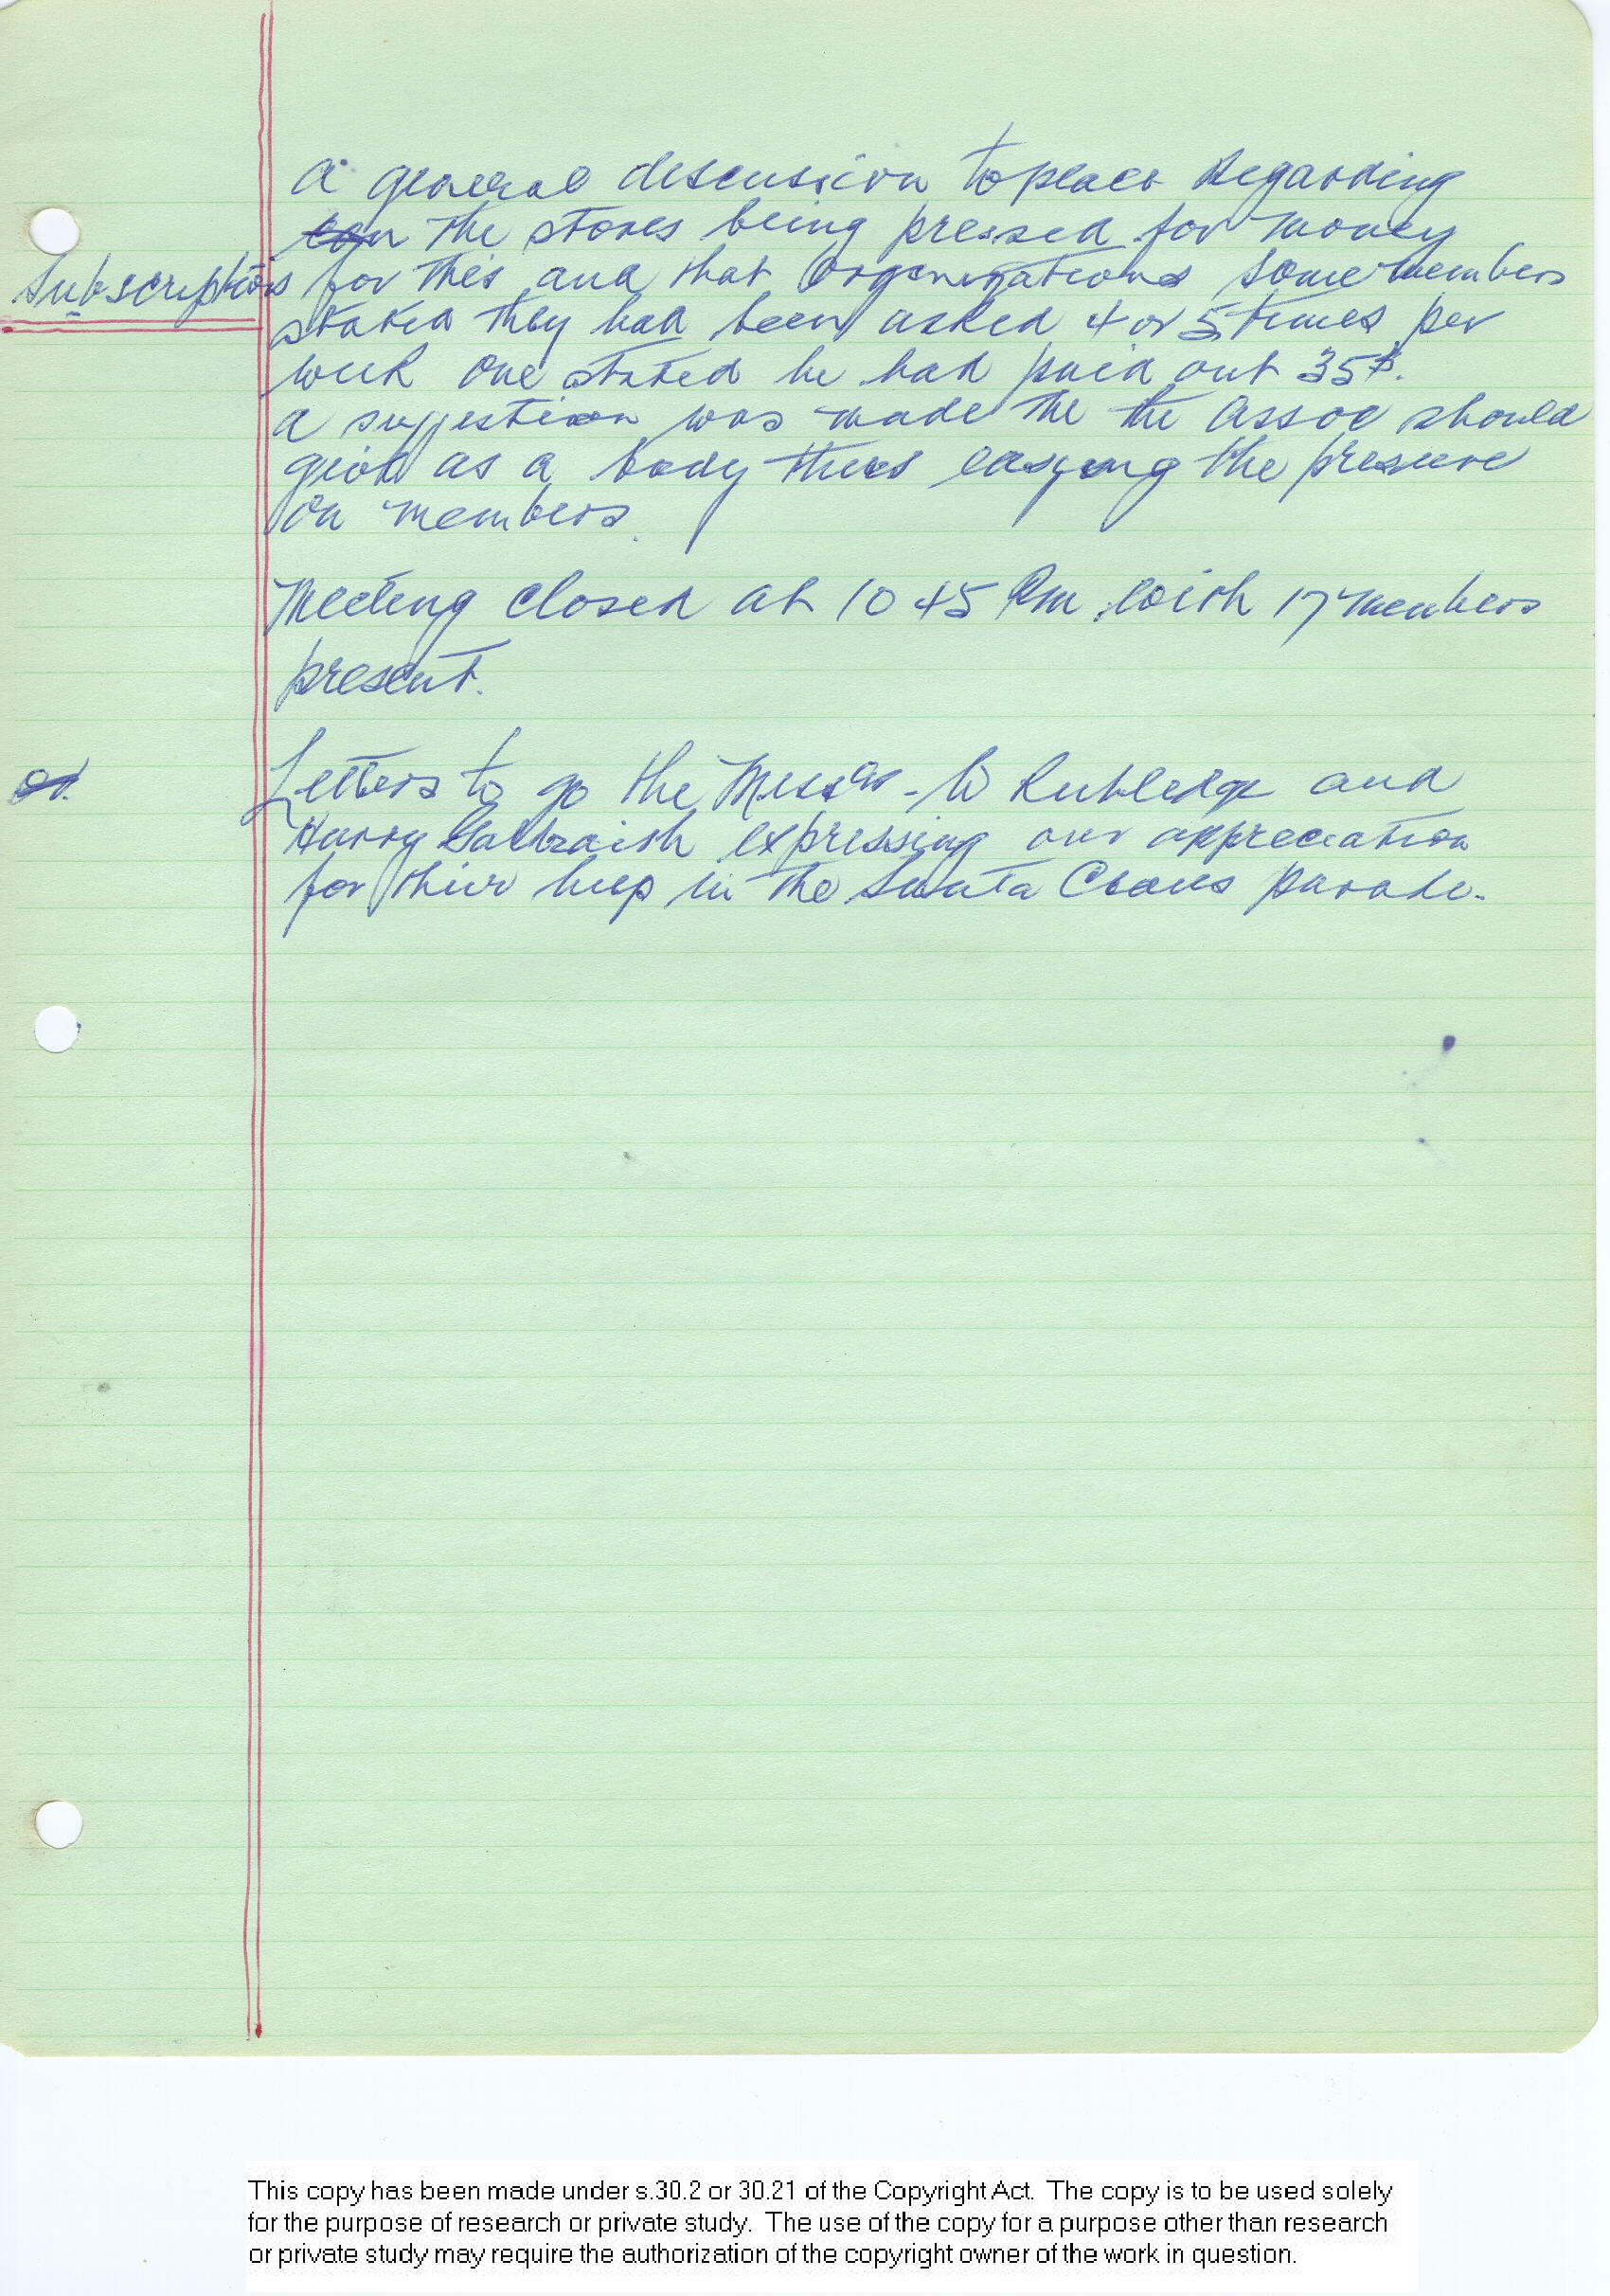 A general discussion to place Regarding
the stores being pressed for money
Subscriptions for this and that Organizations some members
stated they had been asked 4 or 5 times per
week one stated he had paid out 35$.
a suggestion was made the the Assoc should
give as a body thus easying the pressure
on members.
Meeting closed at 10 45 Pm with 17 members
present.
Letters to go the Messrs - W Rutledge and
Harry Galbraith expressing our appreciation
for thier help in the Santa Claus parade.
This copy has been made under s.30.2 or 30.21 of the Copyright Act. The copy is to be used solely
for the purpose of research or private study. The use of the copy for a purpose other than research
or private study may require the authorization of the copyright owner of the work in question.